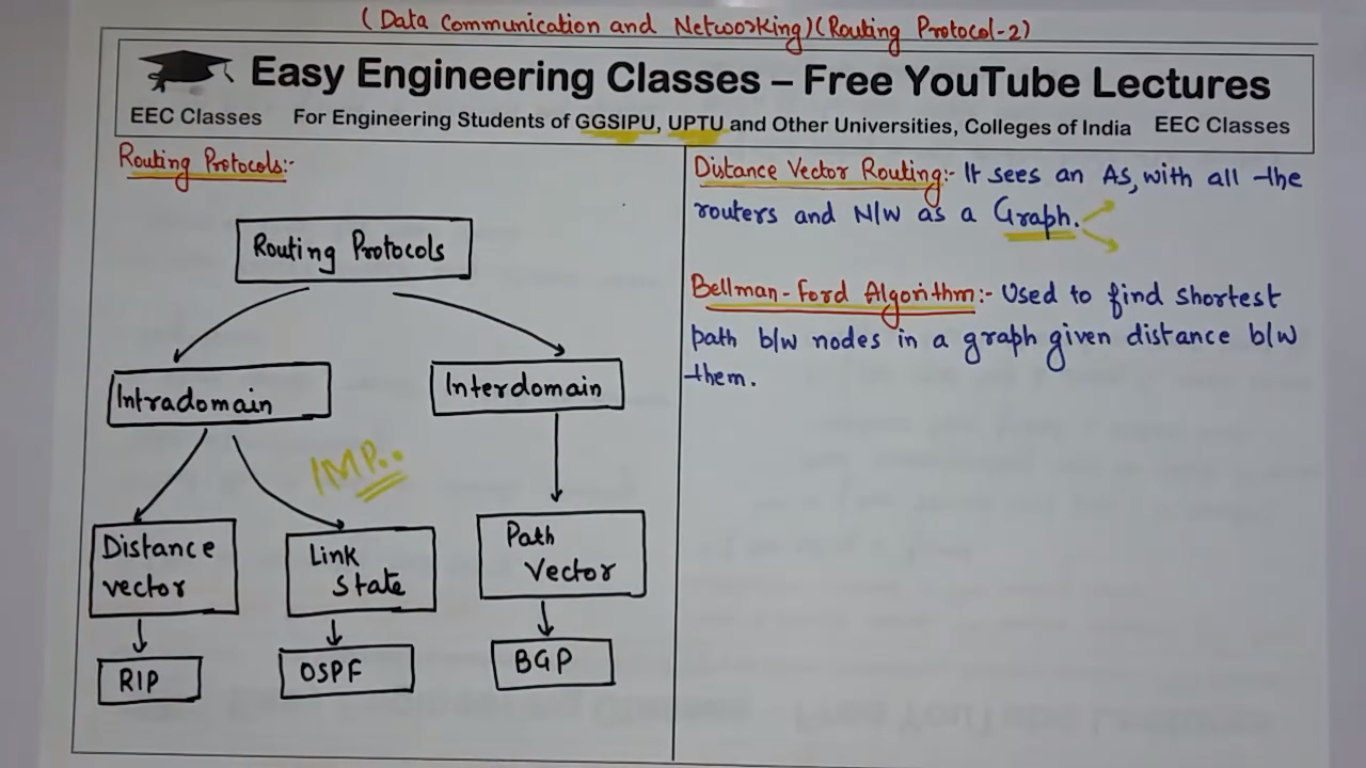 (Data Communication and Networking)(Routing Protocol-2)
Easy Engineering Classes – Free YouTube Lectures
EEC Classes For Engineering Students of GGSIPU, UPTU and Other Universities, Colleges of India EEC Classes
Routing Protocols:-
Routing Protocols
Intradomain
Interdomain
IMP..
Distance
vector
Link
State
Path
Vector
RIP
OSPF
BGP
Distance Vector Routing:- It sees an AS, with all the
routers and N/W as a Graph.
Bellman-Ford Algorithm:- Used to find shortest
path b/w nodes in a graph given distance b/w
them.